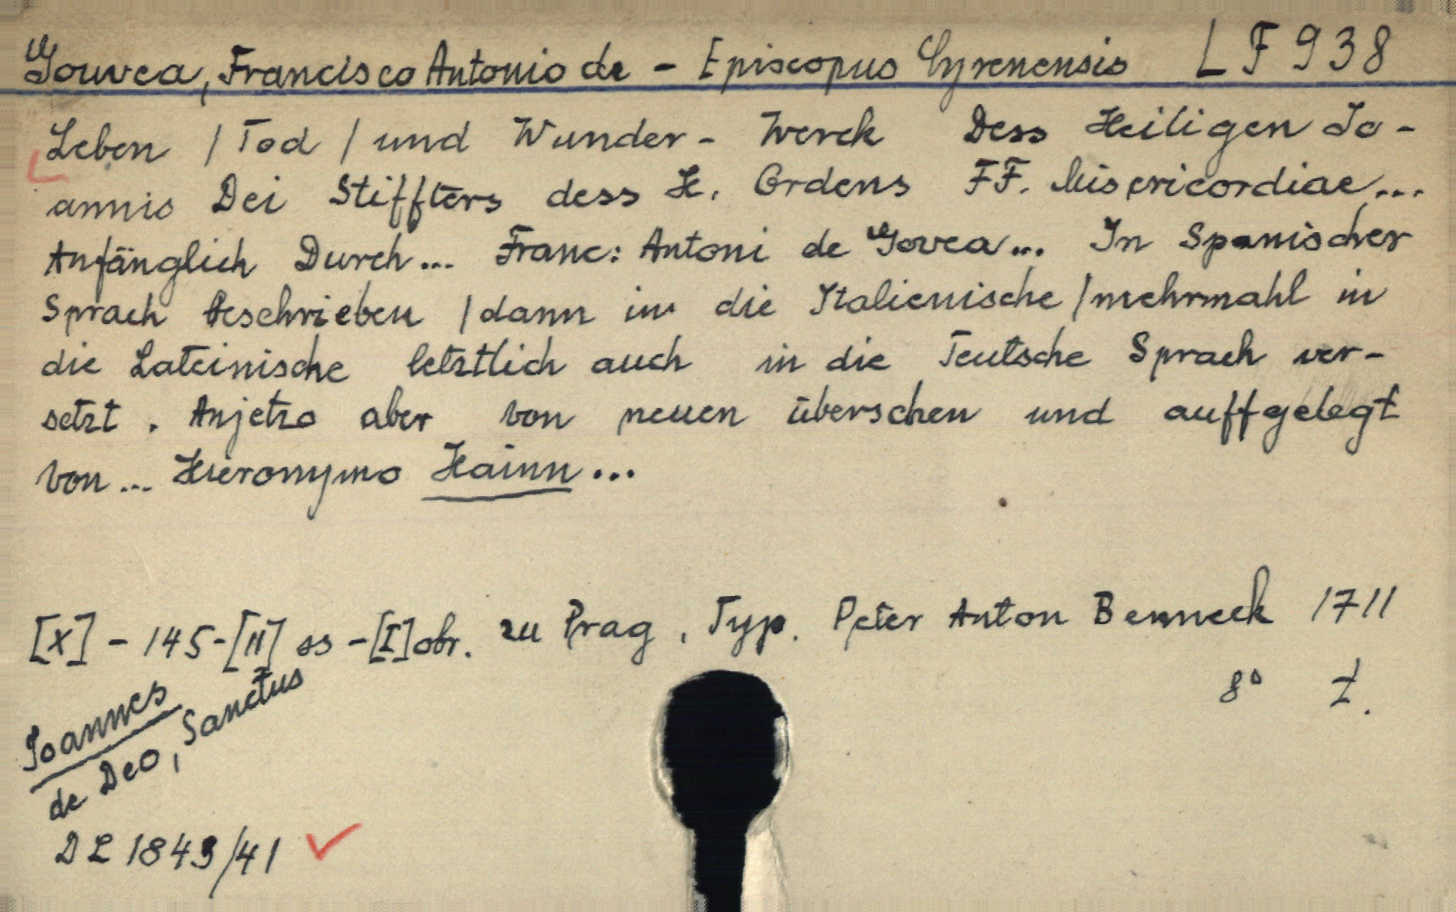 Gouvea, Francisco Antonio de - Episcopus Cyrenensis LF 938
Leben / Tod / und Wunder - Werck Dess Heiligen Jo-
annis Dei Stiffters dess H. Ordens FF. Misericordiae...
Anfänglich Durch... Franc: Antoni de Govea... In Spanischer
Sprach beschrieben / dann in die Italienische / mehrmahl in
die Lateinische letztlich auch in die Teutsche Sprach ver-
setzt. Anjetzo aber von neuen übersehen und auffgelegt
von... Hieronymo Hainn...
[X] - 145 - [II] ss - [I] obr. zu Prag, Typ. Peter Anton Benneck 1711
8° Z.
Joannes
de Deo, Sanctus
DL 1843/41 ✓